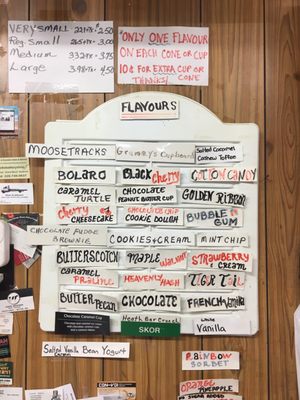 VERY SMALL 221+TX= 2.50
Reg. Small 265+TX= 3.00
Medium 332+TX= 3.75
Large 398+TX= 4.50
"ONLY ONE FLAVOUR
ON EACH CONE OR CUP
10¢ FOR EXTRA CUP OR
THANKS! CONE
FLAVOURS
MOOSETRACKS
Granny's Cupboard
Salted Caramel
Cashew Toffee
BOLARO
BLACK Cherry
COTTON CANDY
CARAMEL
TURTLE
CHOCOLATE
PEANUT BUTTER CUP
GOLDEN RIBBON
Cherry
CHEESECAKE
CHOCOLATE CHIP
COOKIE DOUGH
BUBBLE
GUM
CHOCOLATE FUDGE
BROWNIE
COOKIES & CREAM
MINT CHIP
BUTTERSCOTCH
MAPLE WALNUT
STRAWBERRY
& CREAM
CARAMEL
PRALINE
HEAVENLY HASH
TIGER TAIL
BUTTER PECAN
CHOCOLATE
FRENCH Vanilla
Chocolate Caramel Cup
Heath Bar Crunch
SKOR
White
Vanilla
Salted Vanilla Bean Yogurt
RAINBOW
SORBET
ORANGE
PINEAPPLE
NO SUGAR ADDED